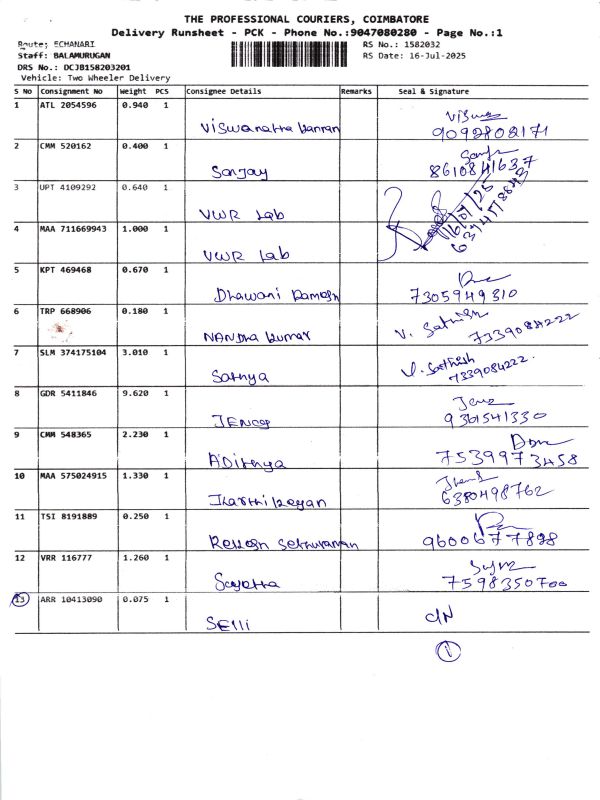 THE PROFESSIONAL COURIERS, COIMBATORE
Delivery Runsheet - PCK - Phone No.:9047080280 - Page No.:1
Route: ECHANARI RS No.: 1582032
Staff: BALAMURUGAN RS Date: 16-Jul-2025
DRS No.: DCJB158203201
Vehicle: Two Wheeler Delivery
S NO Consignment No Weight PCS Consignee Details Remarks Seal & Signature
1 ATL 2054596 0.940 1
9092808171
2 CMM 520162 0.400 1
Sanjay 8610841637
3 UPT 4109292 0.640 1
VWR Lab 16/07/25
4 MAA 711669943 1.000 1
VWR Lab
5 KPT 469468 0.670 1
Dhawani Ramesh 7305949310
6 TRP 668906 0.180 1
NANDha kumar V. Sathish 7339084222
7 SLM 374175104 3.010 1
Sathya V. Sathish 7339084222.
8 GDR 5411846 9.620 1
9361541330
9 CMM 548365 2.230 1
ADithya 7539973458
10 MAA 575024915 1.330 1
Karthikeyan 6380498762
11 TSI 8191889 0.250 1
9600677898
12 VRR 116777 1.260 1
7598350700
13 ARR 10413090 0.075 1
SElli
1